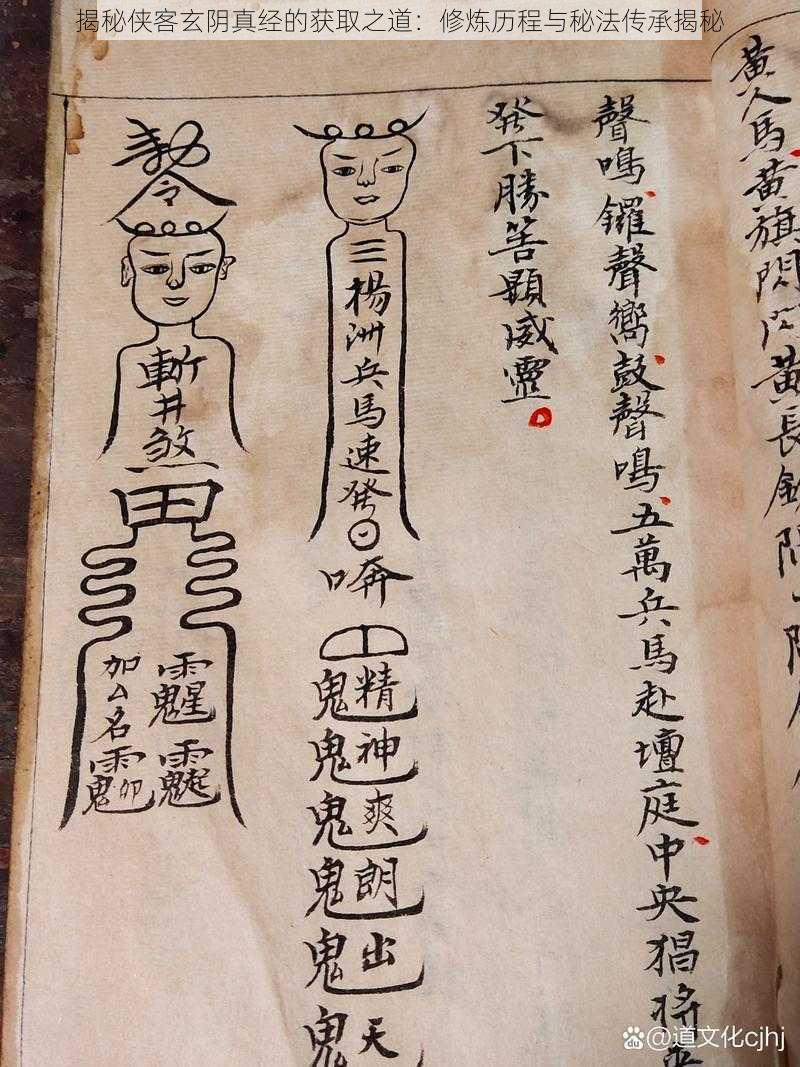 揭秘侠客玄阴真经的获取之道：修炼历程与秘法传承揭秘
黃人馬黃旗閃閃黃長
聲鳴鑼聲嚮鼓聲鳴五萬兵馬赴壇庭中央猖將
發下勝筶顯威靈
三楊洲兵馬速發
唪
鬼精
鬼神
鬼爽
鬼朗
鬼出
鬼天
勅令
斬井煞
田
加厶名
@道文化cjhj